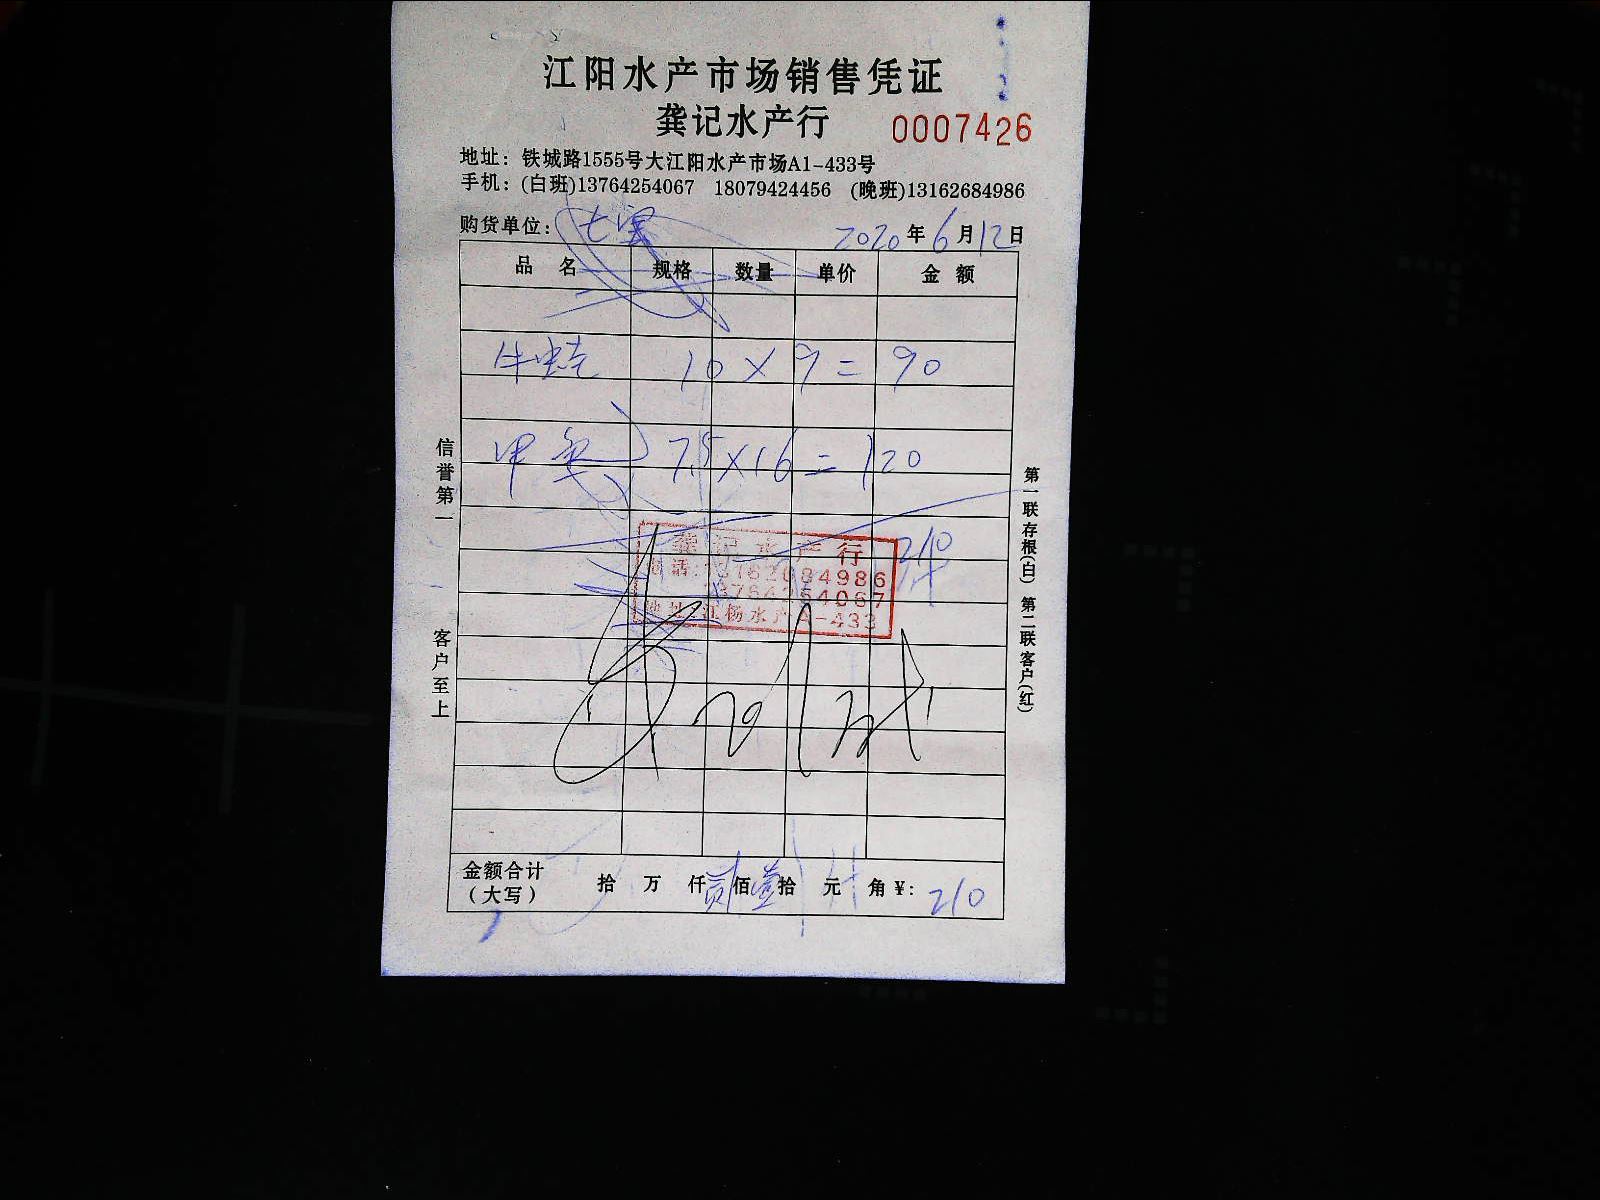 江阳水产市场销售凭证
龚记水产行 0007426
地址：铁城路1555号大江阳水产市场A1-433号
手机：(白班)13764254067 18079424456 (晚班)13162684986
购货单位： 2020年6月12日
品名 规格 数量 单价 金额
牛蛙 10×9=90
甲鱼 7.5×16=120
210
龚记水产行
电话:13162684986
13764254067
地址:江杨水产A-433
信誉第一 客户至上
第一联存根(白) 第二联客户(红)
金额合计（大写） 拾 万 仟贰佰壹拾 元 角 ¥: 210